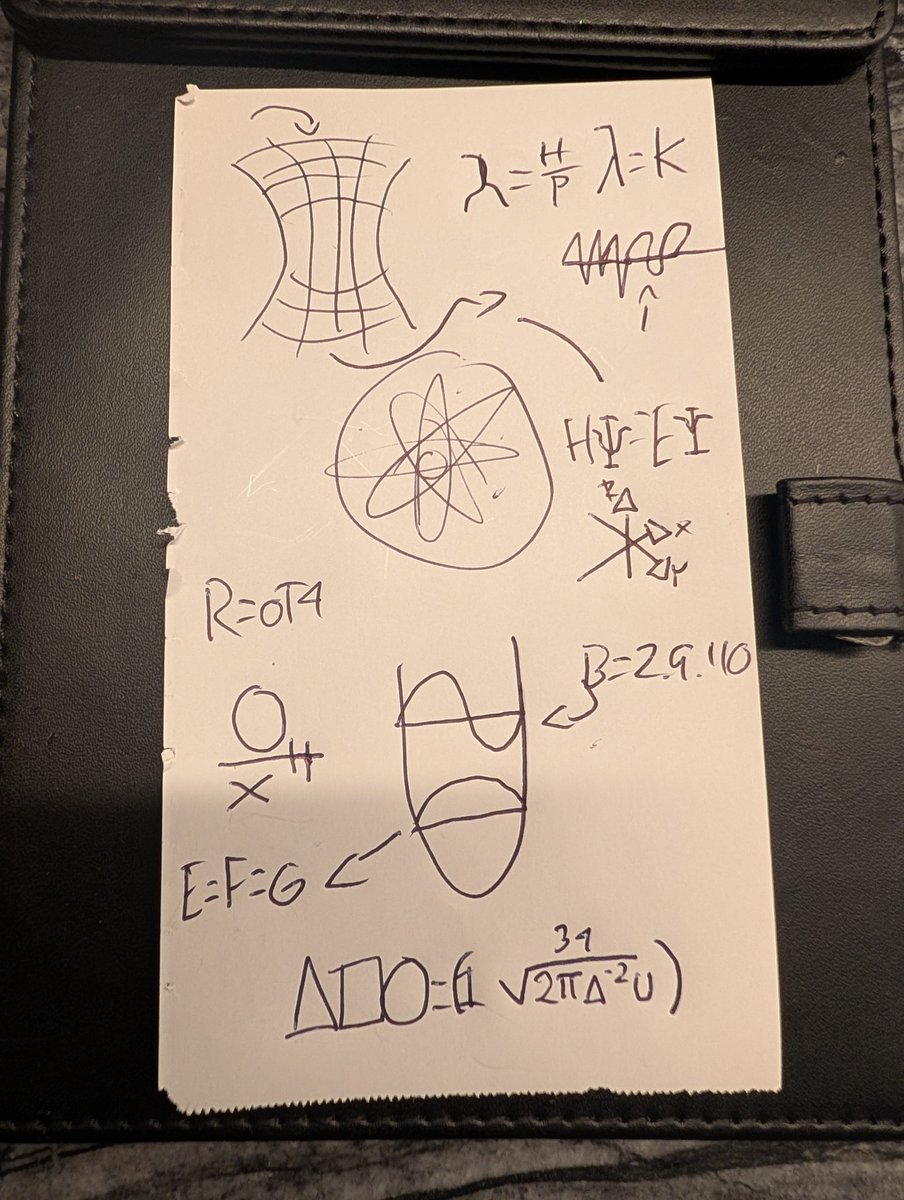 λ=H/P λ=K
HΨ=EΨ
R=σT4
B=2.9.110
O/X
E=F=G
Δ□O=(1 34/√2πΔ-2U)